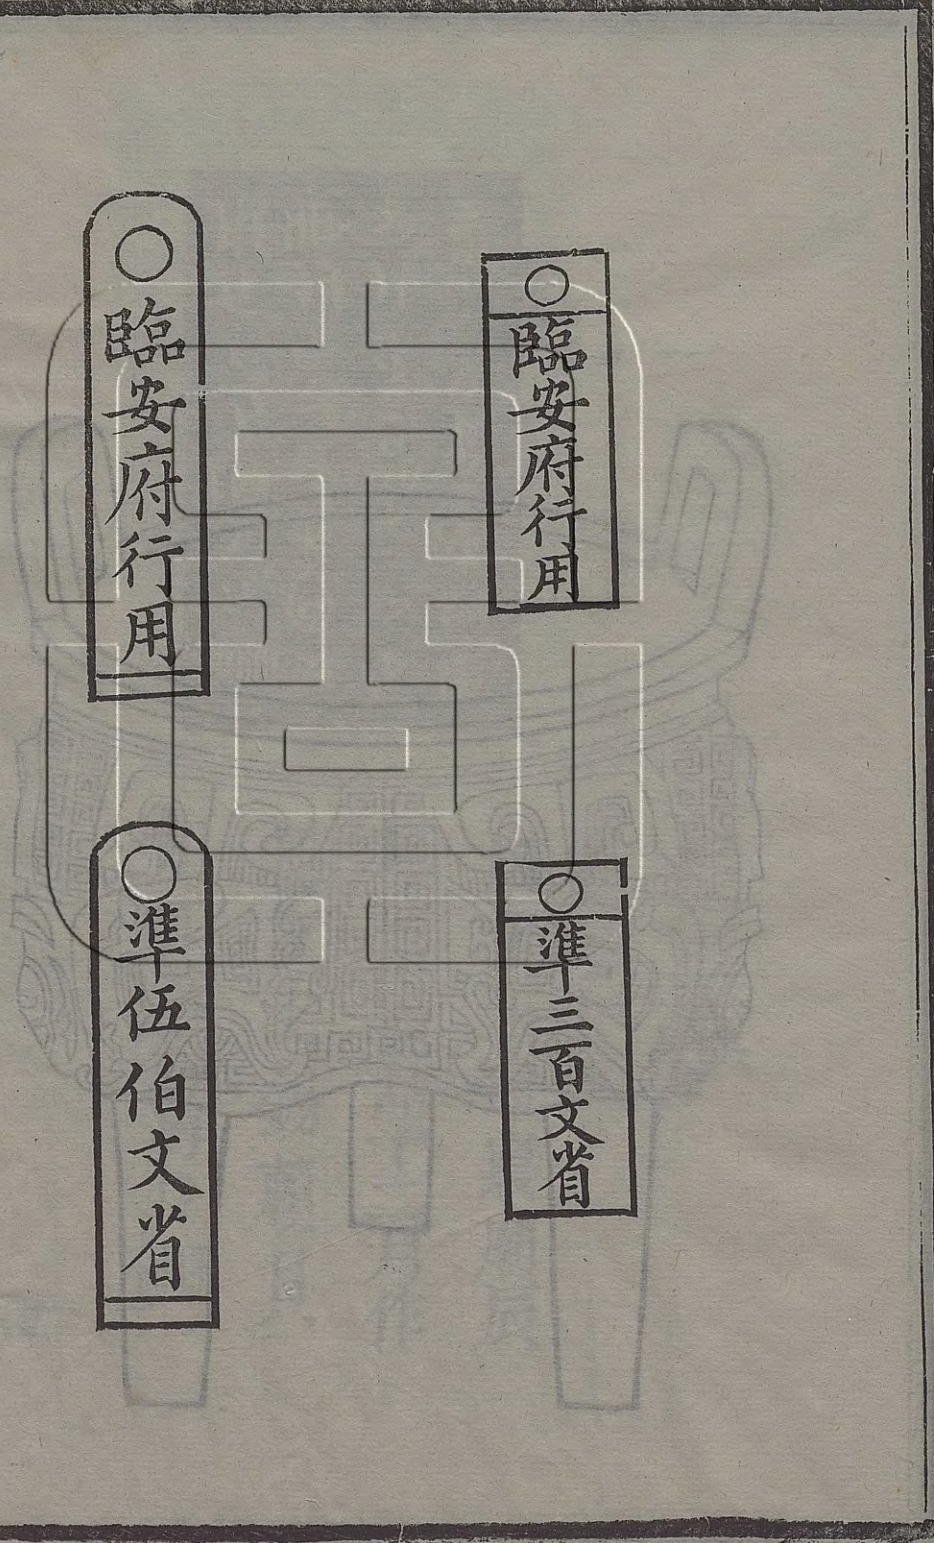 臨安府行用
準三百文省
臨安府行用
準伍伯文省